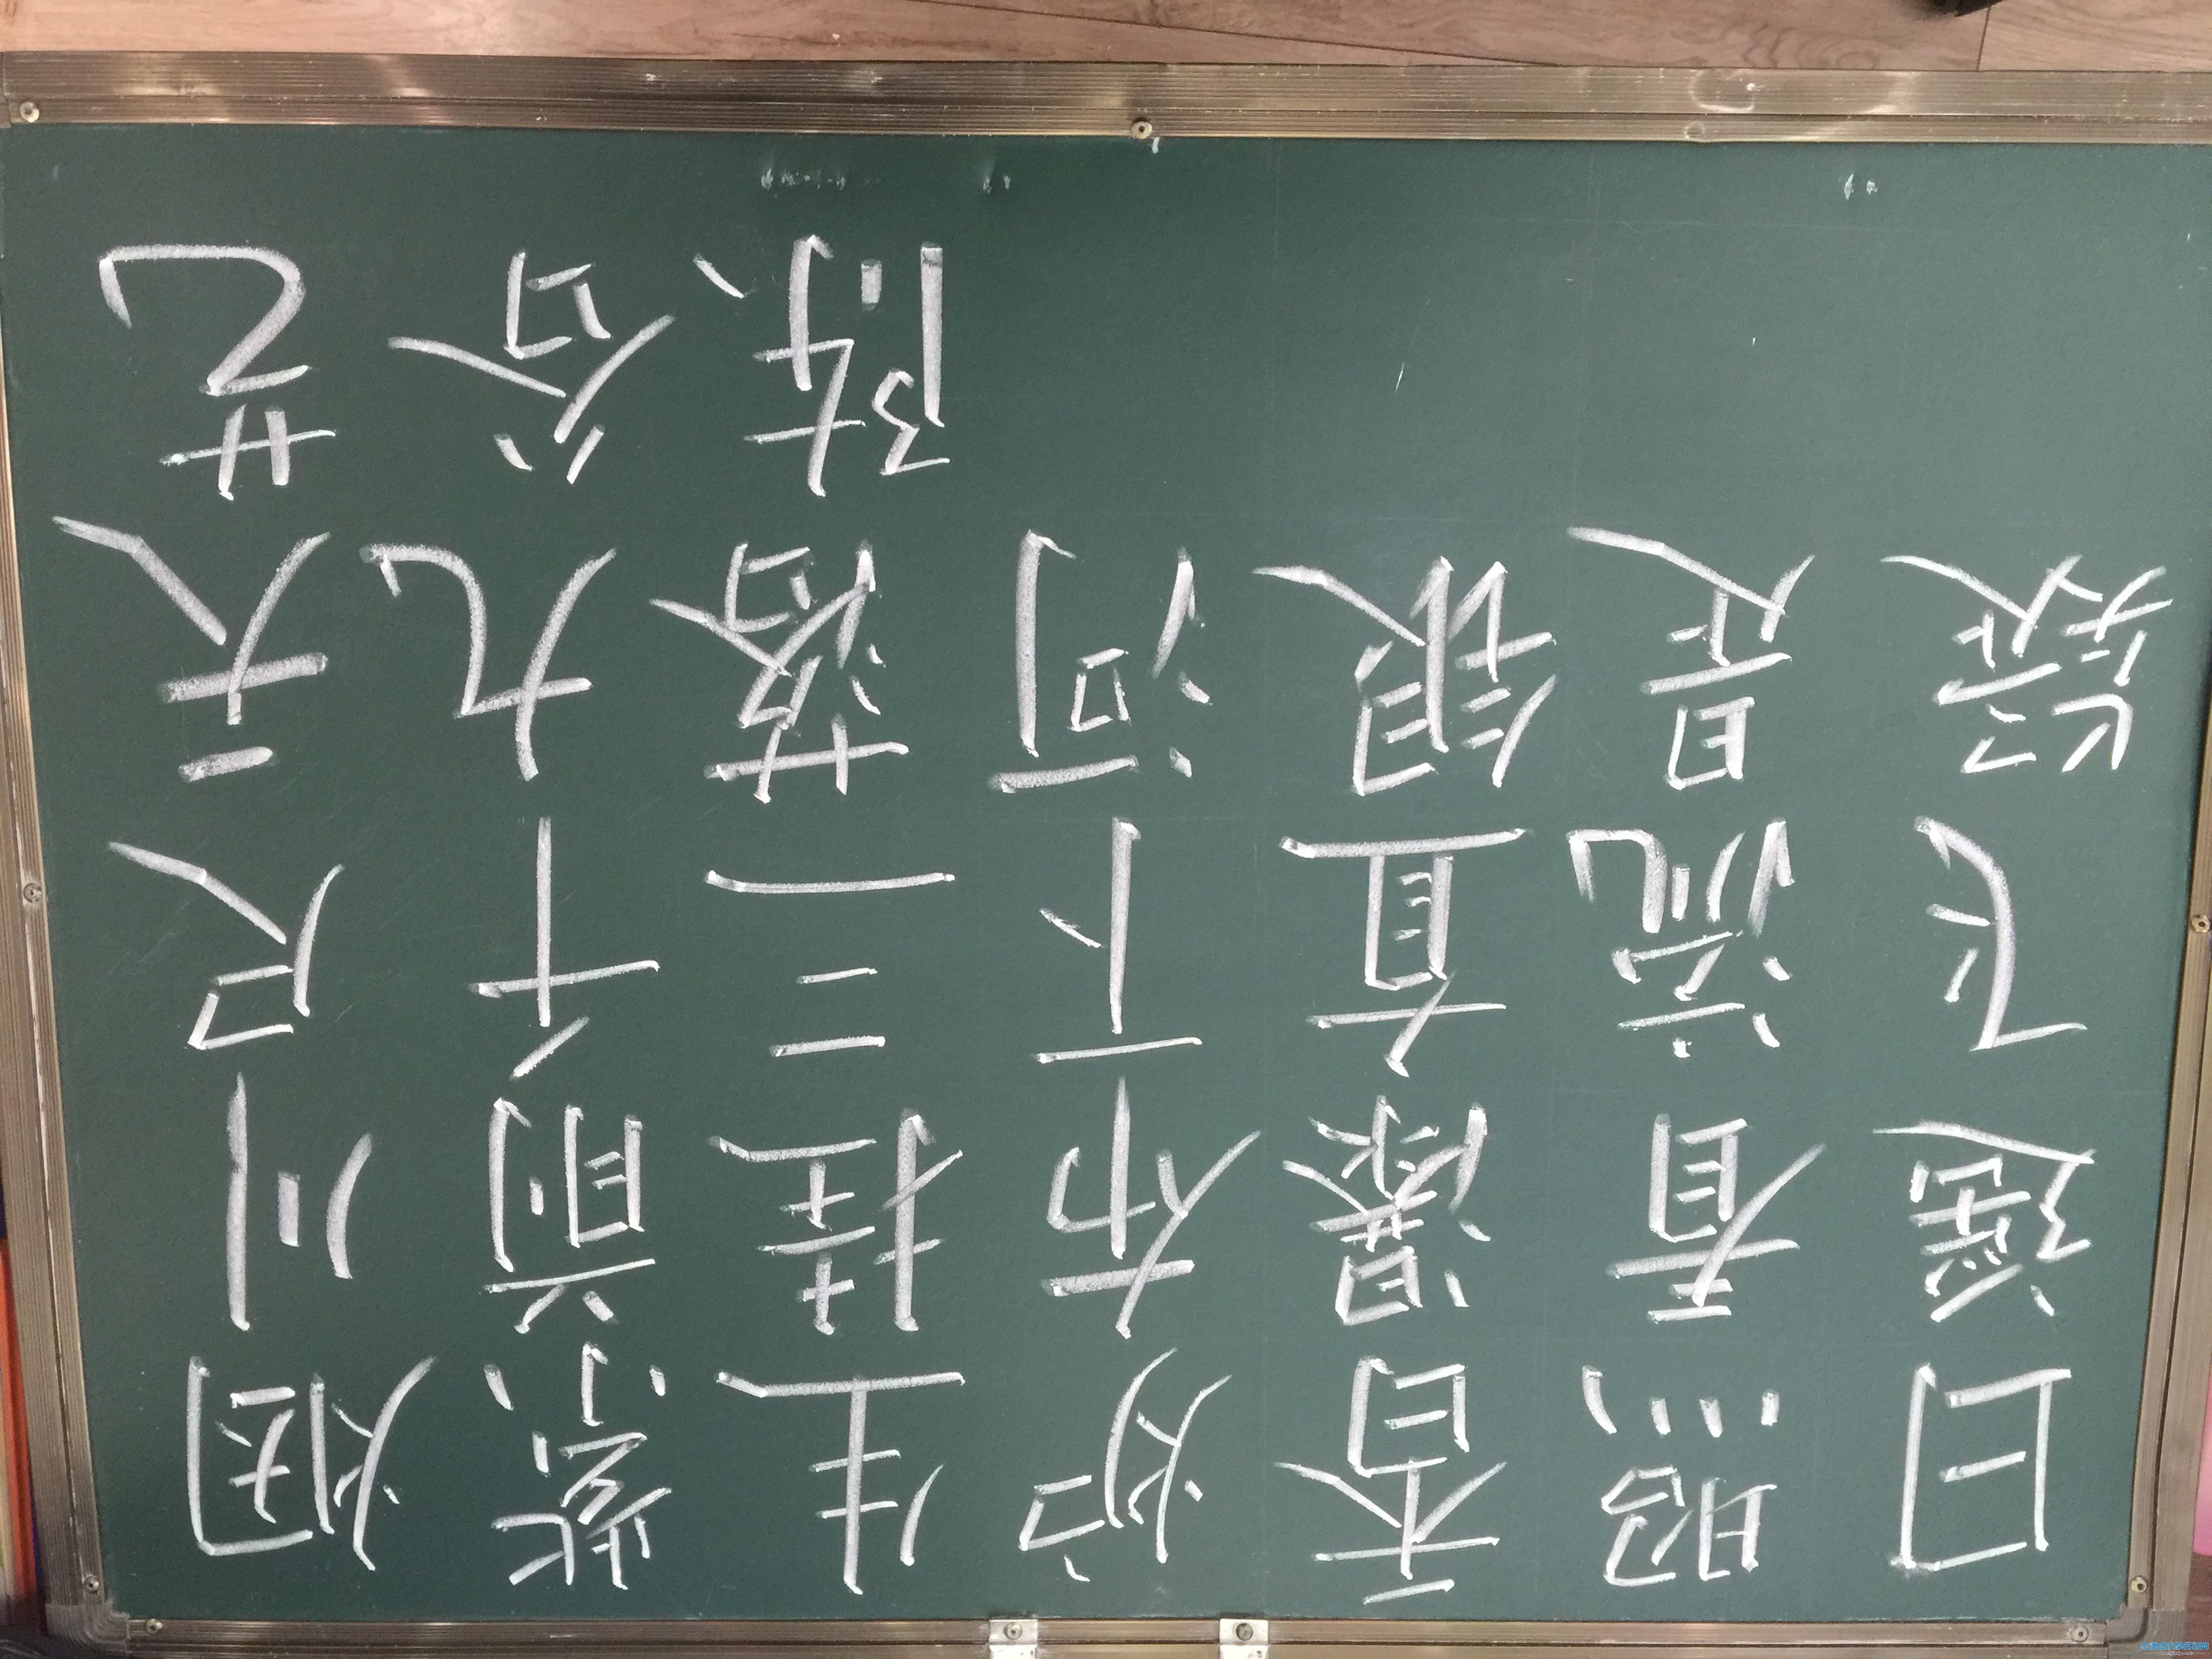 日照香炉生紫烟
遥看瀑布挂前川
飞流直下三千尺
疑是银河落九天
陈谷艺